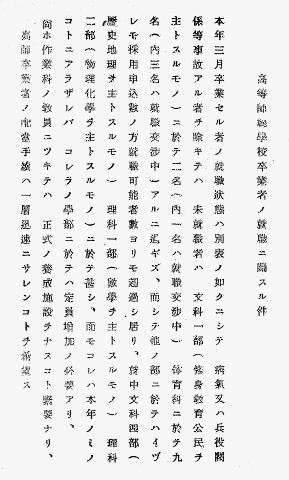 高等師範學校卒業者ノ就職ニ關スル件
本年三月卒業セル者ノ就職狀態ハ別表ノ如クニシテ 病氣又ハ兵役關
係等事故アル者ヲ除キテハ 未就職者ハ 文科一部(修身敎育公民ヲ
主トスルモノ)ニ於テ二名(內一名ハ就職交渉中) 體育科ニ於テ九
名(內三名ハ就職交渉中)アルニ過ギズ、而シテ他ノ部ニ於テハイヅ
レモ採用申込數ノ方就職可能者數ヨリモ超過シ居リ、就中文科四部(
歷史地理ヲ主トスルモノ) 理科一部(數學ヲ主トスルモノ) 理科
二部(物理化學ヲ主トスルモノ)ニ於テ甚シ、而モコレハ本年ノミノ
コトニアラザレバ コレラノ學部ニ於テハ定員增加ノ必要アリ、
尙ホ作業科ノ敎員ニツキテハ 正式ノ養成施設ヲナスコト緊要ナリ、
高師卒業者ノ配當手續ハ一層迅速ニサレンコトヲ希望ス